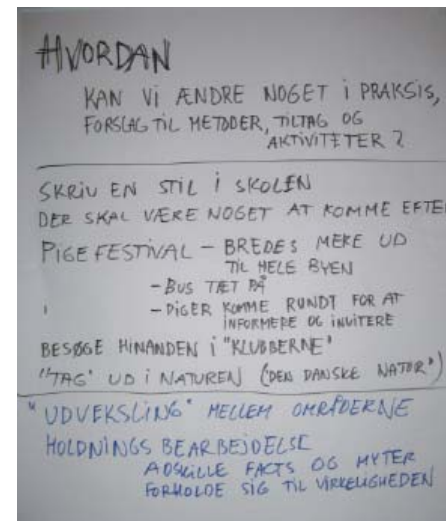 HVORDAN
KAN Vi ÆNDRE NOGET i PRAKSIS,
FORSLAG TIL METODER, TILTAG OG
AKTIVITETER?
SKRiV EN STiL i SKOLEN
DER SKAL VÆRE NOGET AT KOMME EFTER
PiGEFESTiVAL – BREDES MERE UD
TiL HELE BYEN
- BUS TÆT PÅ
- PIGER KOMME RUNDT FOR AT
INFORMERE OG INVITERE
BESØGE HINANDEN i "KLUBBERNE"
"TAG" UD i NATUREN (DEN DANSKE NATUR")
"UDVEKSLING" MELLEM OMRÅDERNE
HOLDNINGS BEARBEJDELSE
ADSKILLE FACTS OG MYTER
FORHOLDE SIG TIL VIRKELIGHEDEN